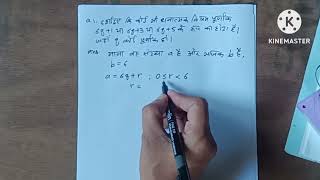 Q1. दर्शाइए कि कोई भी धनात्मक विषम पूर्णांक
6q+1 या 6q+3 या 6q+5 के रूप का होता है।
जहाँ q कोई पूर्णांक है।
Ans माना कि संख्या a है और भाजक b है,
b=6
a=6q+r ; 0≤r<6
r=
KINEMASTER